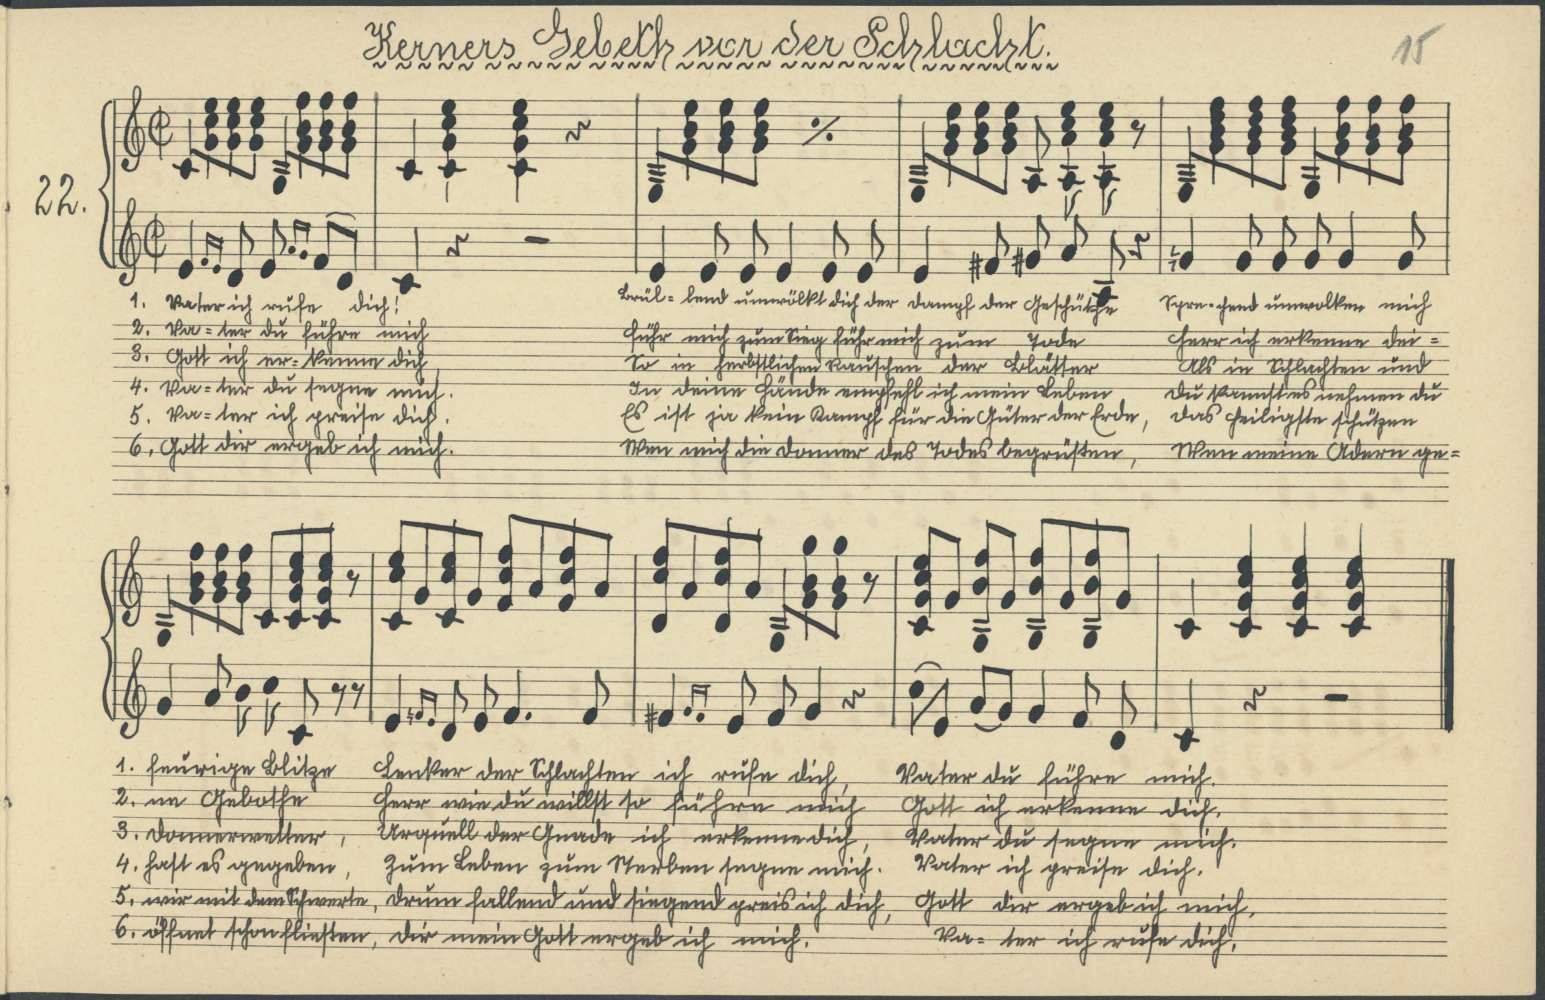 Kerners Gebeth vor der Schlacht.
15
22.
1. Vater ich rufe dich! Brül-lend umwölkt dich der Dampf der Geschütze Spre-chend umwolken mich
2. Va-ter du führe mich führ mich zum Sieg führ mich zum Tode Herr ich erkenne dei-
3. Gott ich er-kenne dich So in herbstlichen Rauschen der Blätter Als in Schlachten und
4. Va-ter du segne mich. In deine Hände empfehl ich mein Leben Du kannst es nehmen du
5. Va-ter ich preise dich. Es ist ja kein Kampf für die Güter der Erde, das heiligste schützen
6. Gott dir ergeb ich mich. Wen mich die Donner des Todes begrüßen, Wen meine Adern ge=
1. feurige Blitze Lenker der Schlachten ich rufe dich, Vater du führe mich.
2. ne Gebothe Herr wie du willst so führe mich Gott ich erkenne dich.
3. Donnerwetter, Urquell der Gnade ich erkenne dich, Vater du segne mich.
4. hast es gegeben, Zum Leben zum Sterben segne mich. Vater ich preise dich.
5. wir mit dem Schwerte, drum fallend und siegend preis ich dich, Gott dir ergeb ich mich.
6. öffnet schon fließen, dir mein Gott ergeb ich mich. Va-ter ich rufe dich.